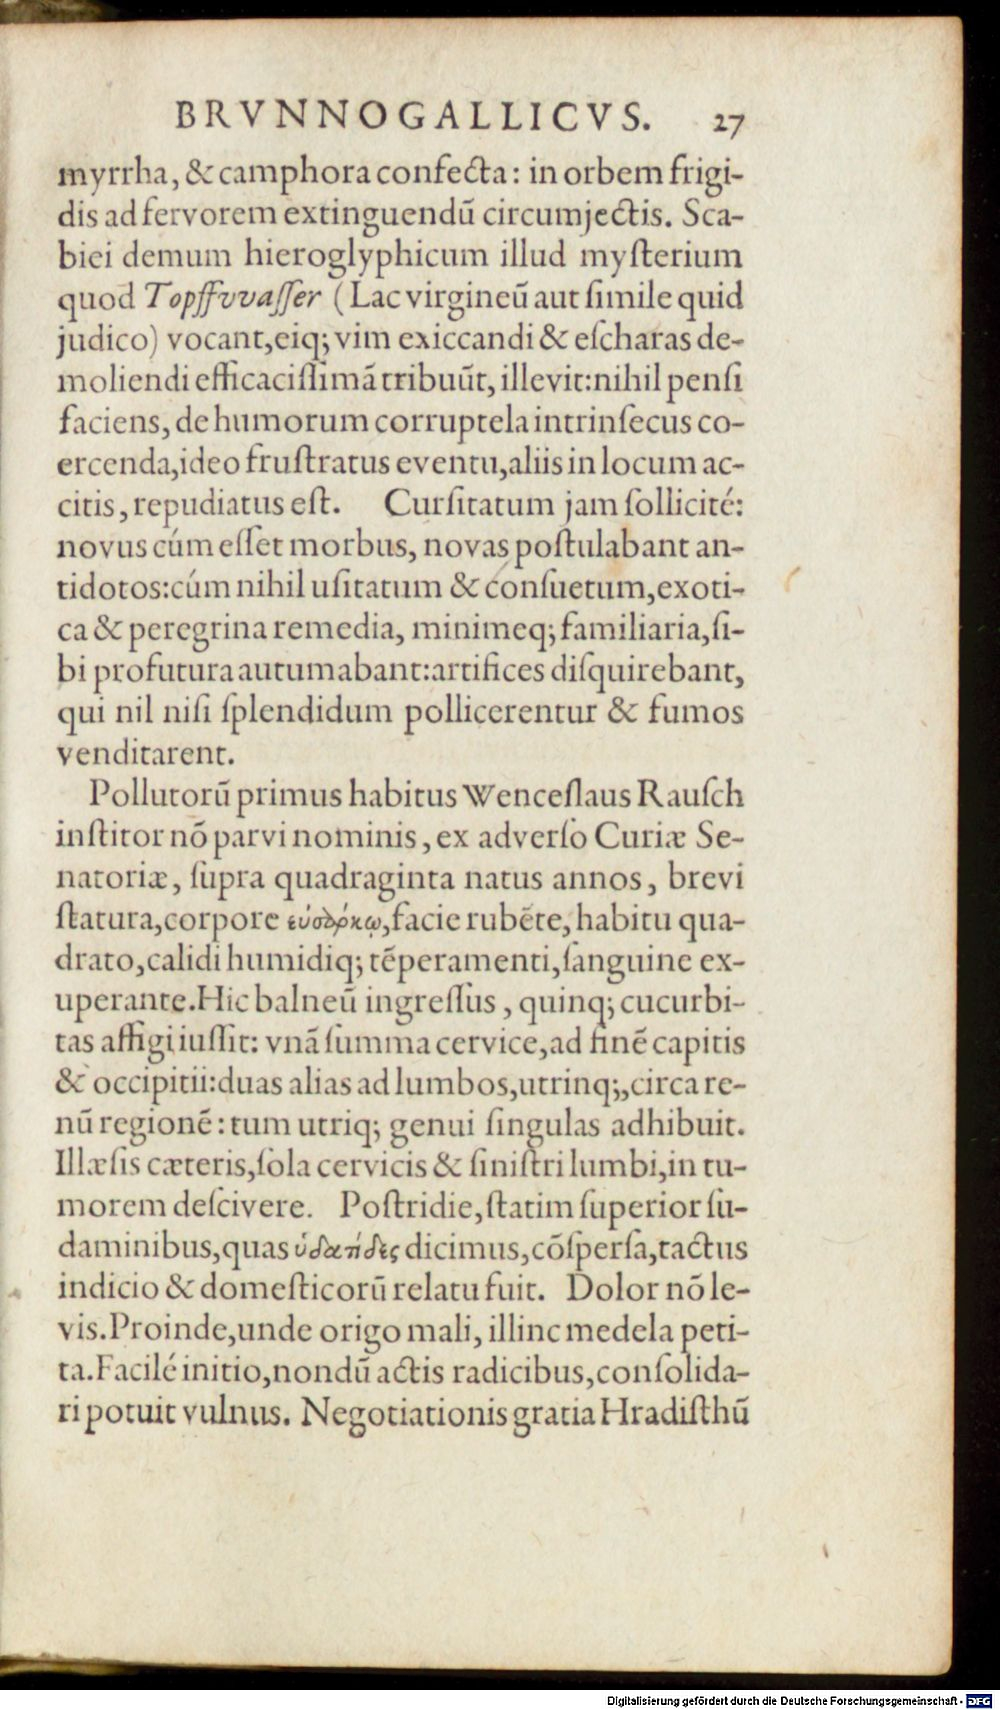 BRVNNOGALLICVS. 27
myrrha, & camphora confecta: in orbem frigi-
dis ad fervorem extinguendũ circumjectis. Sca-
biei demum hieroglyphicum illud myſterium
quod Topffvvaſſer (Lac virgineũ aut ſimile quid
judico) vocant, eiq; vim exiccandi & eſcharas de-
moliendi efficaciſſimã tribuũt, illevit: nihil penſi
faciens, de humorum corruptela intrinſecus co-
ercenda, ideo fruſtratus eventu, aliis in locum ac-
citis, repudiatus eſt. Curſitatum jam ſollicité:
novus cúm eſſet morbus, novas poſtulabant an-
tidotos: cúm nihil uſitatum & conſuetum, exoti-
ca & peregrina remedia, minimeq; familiaria, ſi-
bi profutura autumabant: artifices diſquirebant,
qui nil niſi ſplendidum pollicerentur & fumos
venditarent.
Pollutorũ primus habitus Wenceſlaus Rauſch
inſtitor nõ parvi nominis, ex adverſo Curiæ Se-
natoriæ, ſupra quadraginta natus annos, brevi
ſtatura, corpore εὐσάρκῳ, facie rubẽte, habitu qua-
drato, calidi humidiq; tẽperamenti, ſanguine ex-
uperante. Hic balneũ ingreſſus, quinq; cucurbi-
tas affigi iuſſit: vnã ſumma cervice, ad finẽ capitis
& occipitii: duas alias ad lumbos, utrinq;, circa re-
nũ regionẽ: tum utriq; genui ſingulas adhibuit.
Illæſis cæteris, ſola cervicis & ſiniſtri lumbi, in tu-
morem deſcivere. Poſtridie, ſtatim ſuperior ſu-
daminibus, quas ὑδατίδες dicimus, cõſperſa, tactus
indicio & domeſticorũ relatu fuit. Dolor nõ le-
vis. Proinde, unde origo mali, illinc medela peti-
ta. Facilé initio, nondũ actis radicibus, conſolida-
ri potuit vulnus. Negotiationis gratia Hradiſthũ
Digitalisierung gefördert durch die Deutsche Forschungsgemeinschaft - DFG